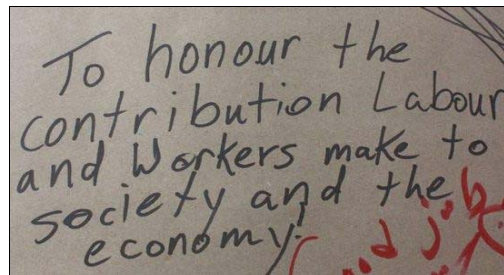 To honour the
contribution Labour
and Workers make to
society and the
economy!
job